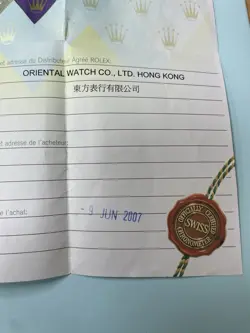 et adresse du Distributeur Agréé ROLEX:
ORIENTAL WATCH CO., LTD. HONG KONG
東方表行有限公司
et adresse de l'acheteur:
de l'achat:
- 9 JUN 2007
OFFICIALLY CERTIFIED
SWISS
CHRONOMETER